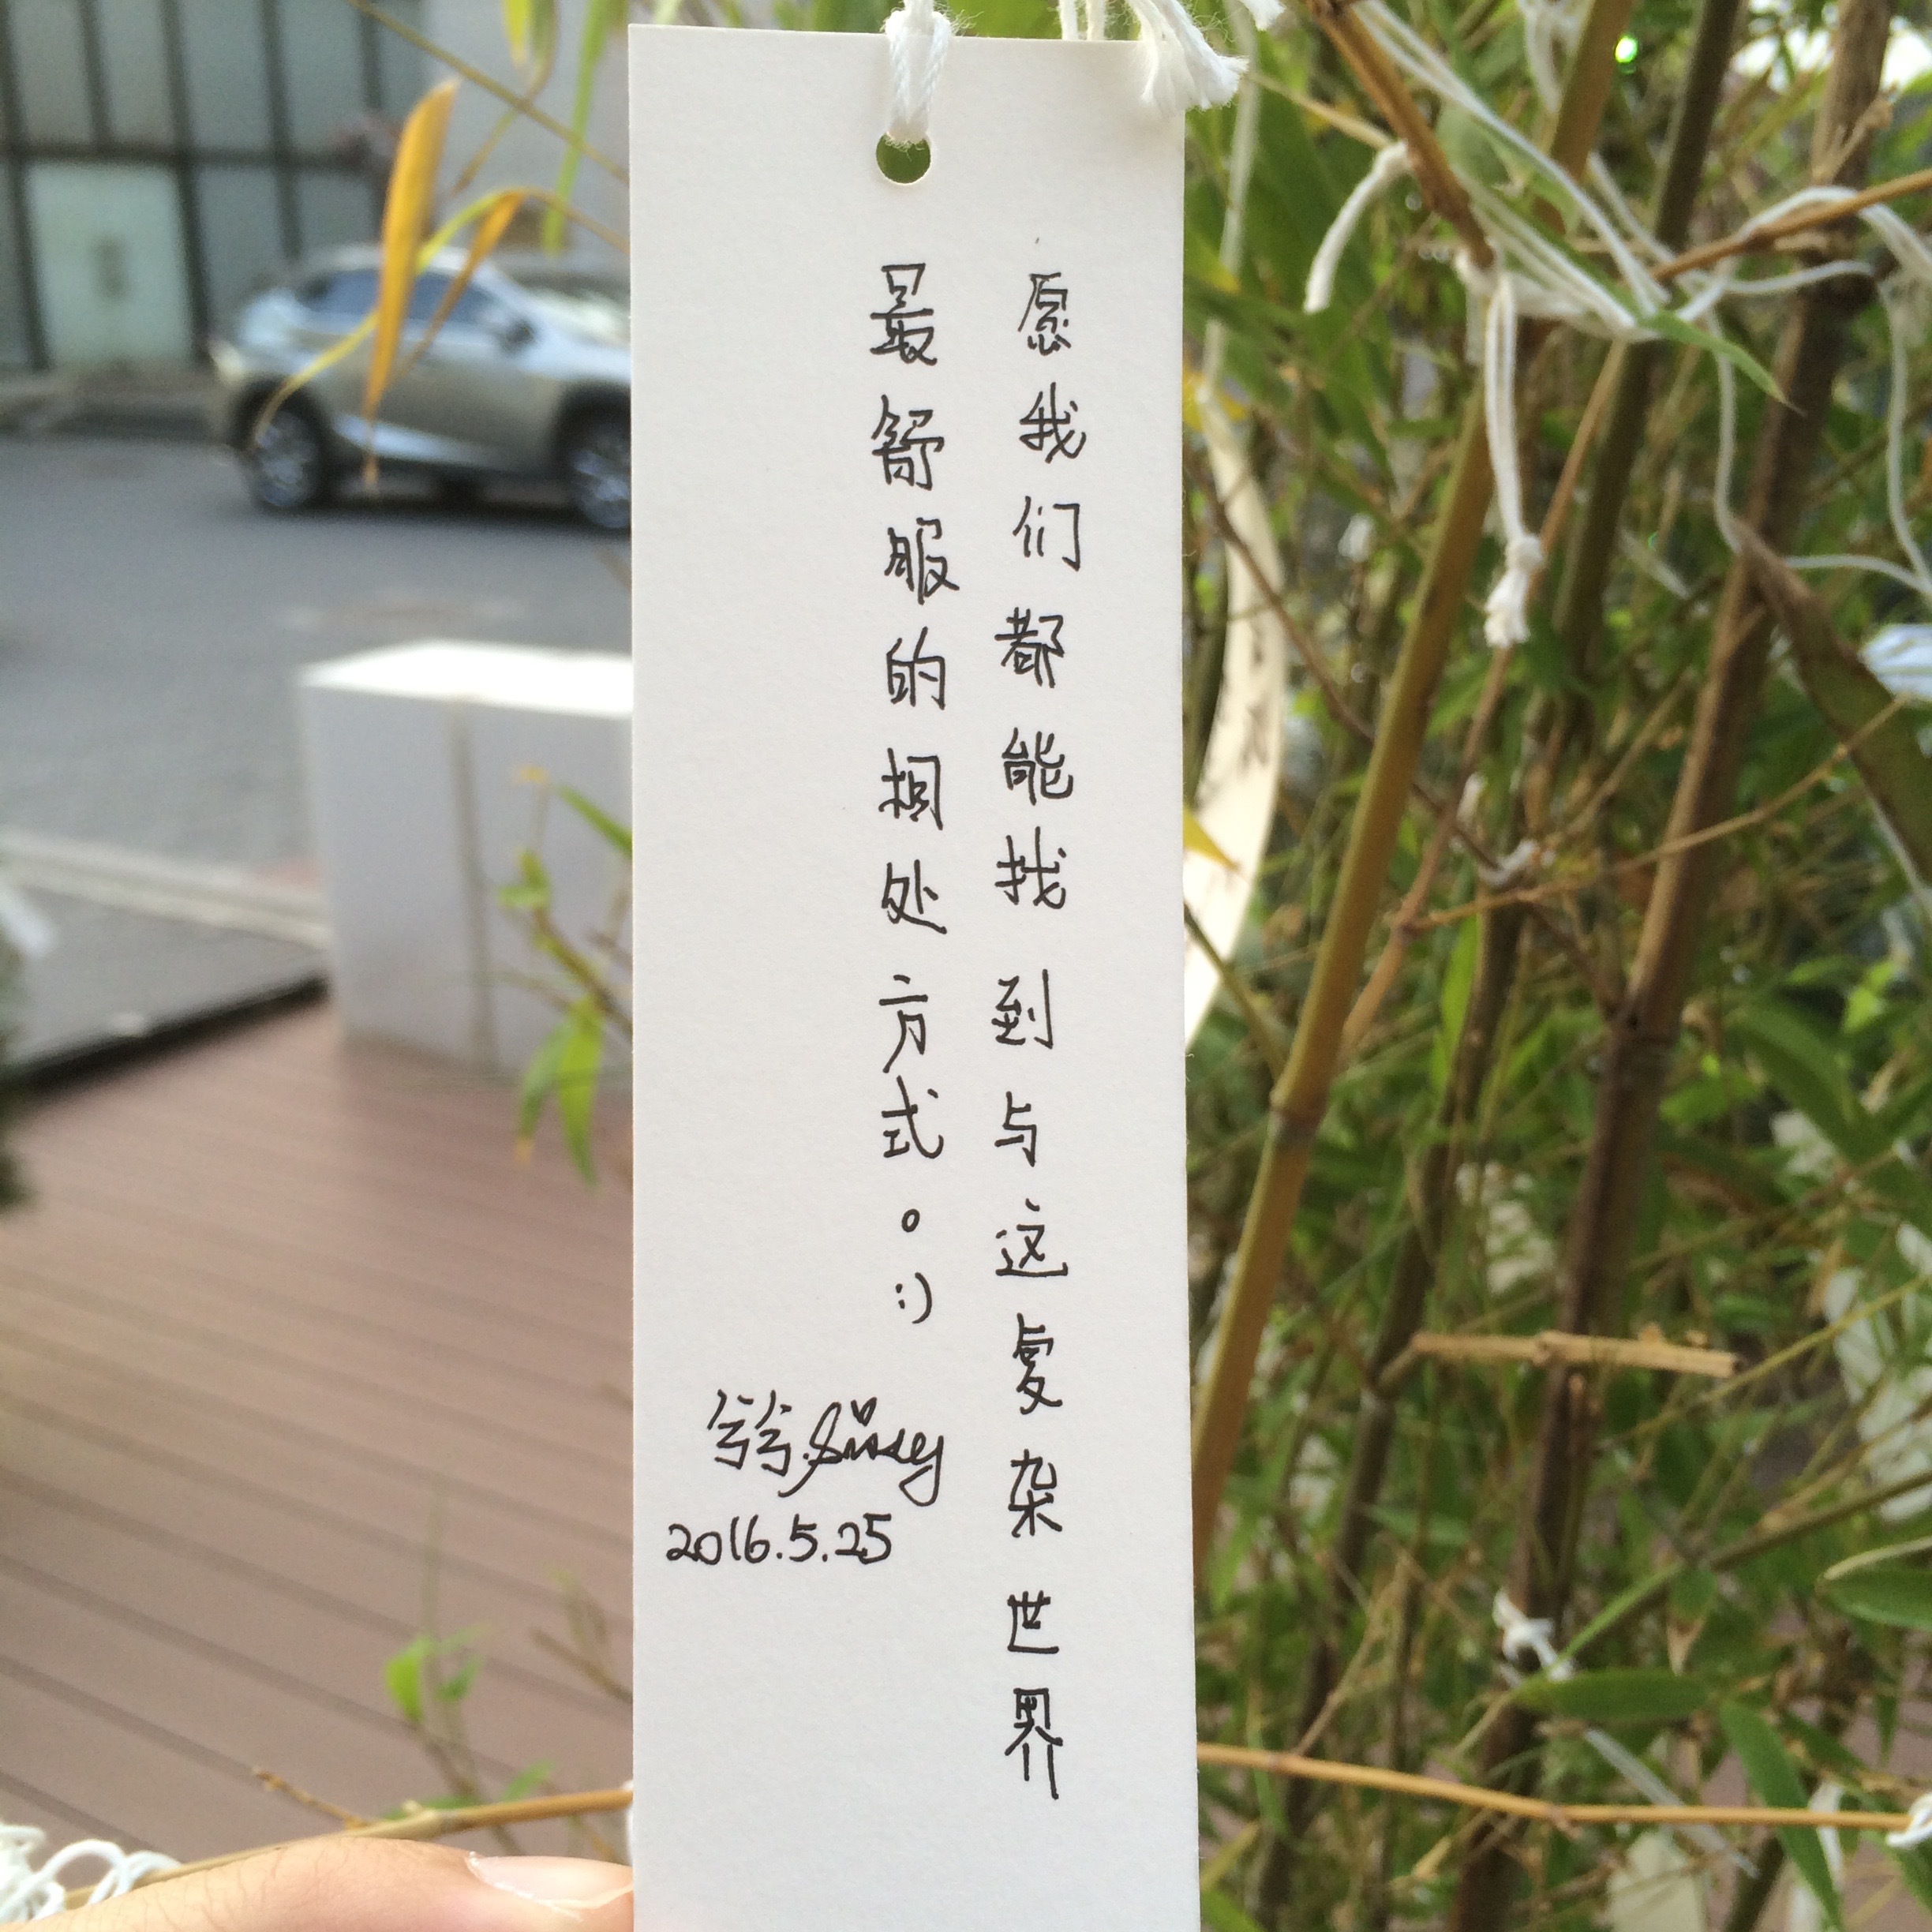 愿我们都能找到与这复杂世界
最舒服的相处方式。:)
兮兮.Sissey
2016.5.25